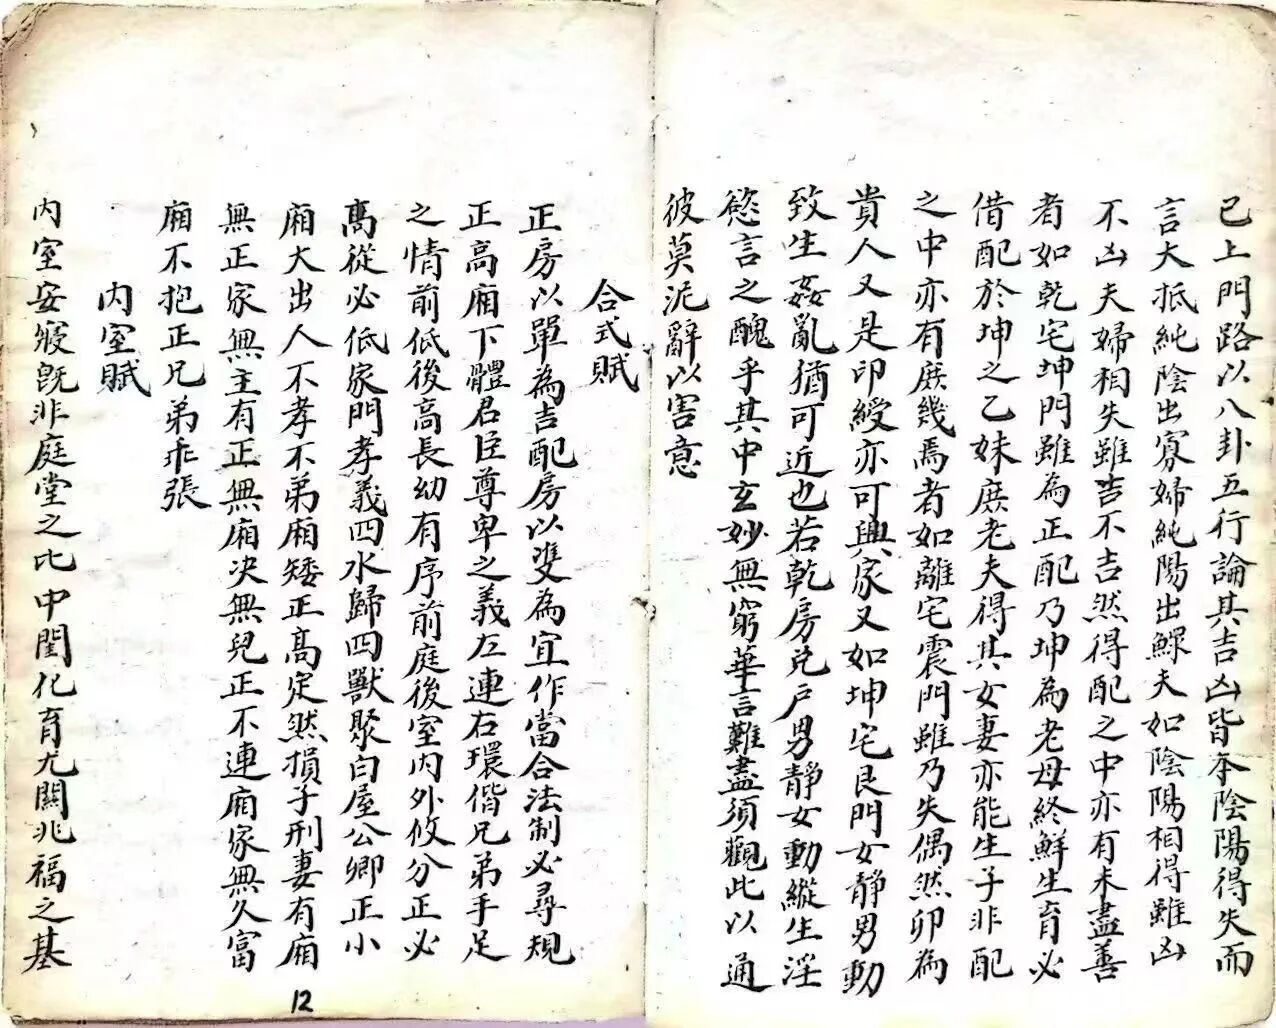 已上門路以八卦五行論其吉凶皆本陰陽得失而
言大抵純陰出寡婦純陽出鰥夫如陰陽相得雖凶
不凶夫婦相失雖吉不吉然得配之中亦有未盡善
者如乾宅坤門雖為正配乃坤為老母終鮮生育必
借配於坤之乙妹庶老夫得其女妻亦能生子非配
之中亦有庶幾焉者如離宅震門雖乃失偶然卯為
貴人又是印綬亦可興家又如坤宅艮門女靜男動
致生姦亂猶可近也若乾房兌戶男靜女動縱生淫
慾言之醜乎其中玄妙無窮華言難盡須觀此以通
彼莫泥辭以害意
合式賦
正房以單為吉配房以雙為宜作當合法制必尋規
正高廂下體君臣尊卑之義左連右環偕兄弟手足
之情前低後高長幼有序前庭後室內外攸分正必
高從必低家門孝義四水歸四獸聚白屋公卿正小
廂大出人不孝不弟廂矮正高定然損子刑妻有廂
無正家無主有正無廂決無兒正不連廂家無久富
廂不抱正兄弟乖張
內室賦
內室安寢既非庭堂之比中閨化育尤關兆福之基
12